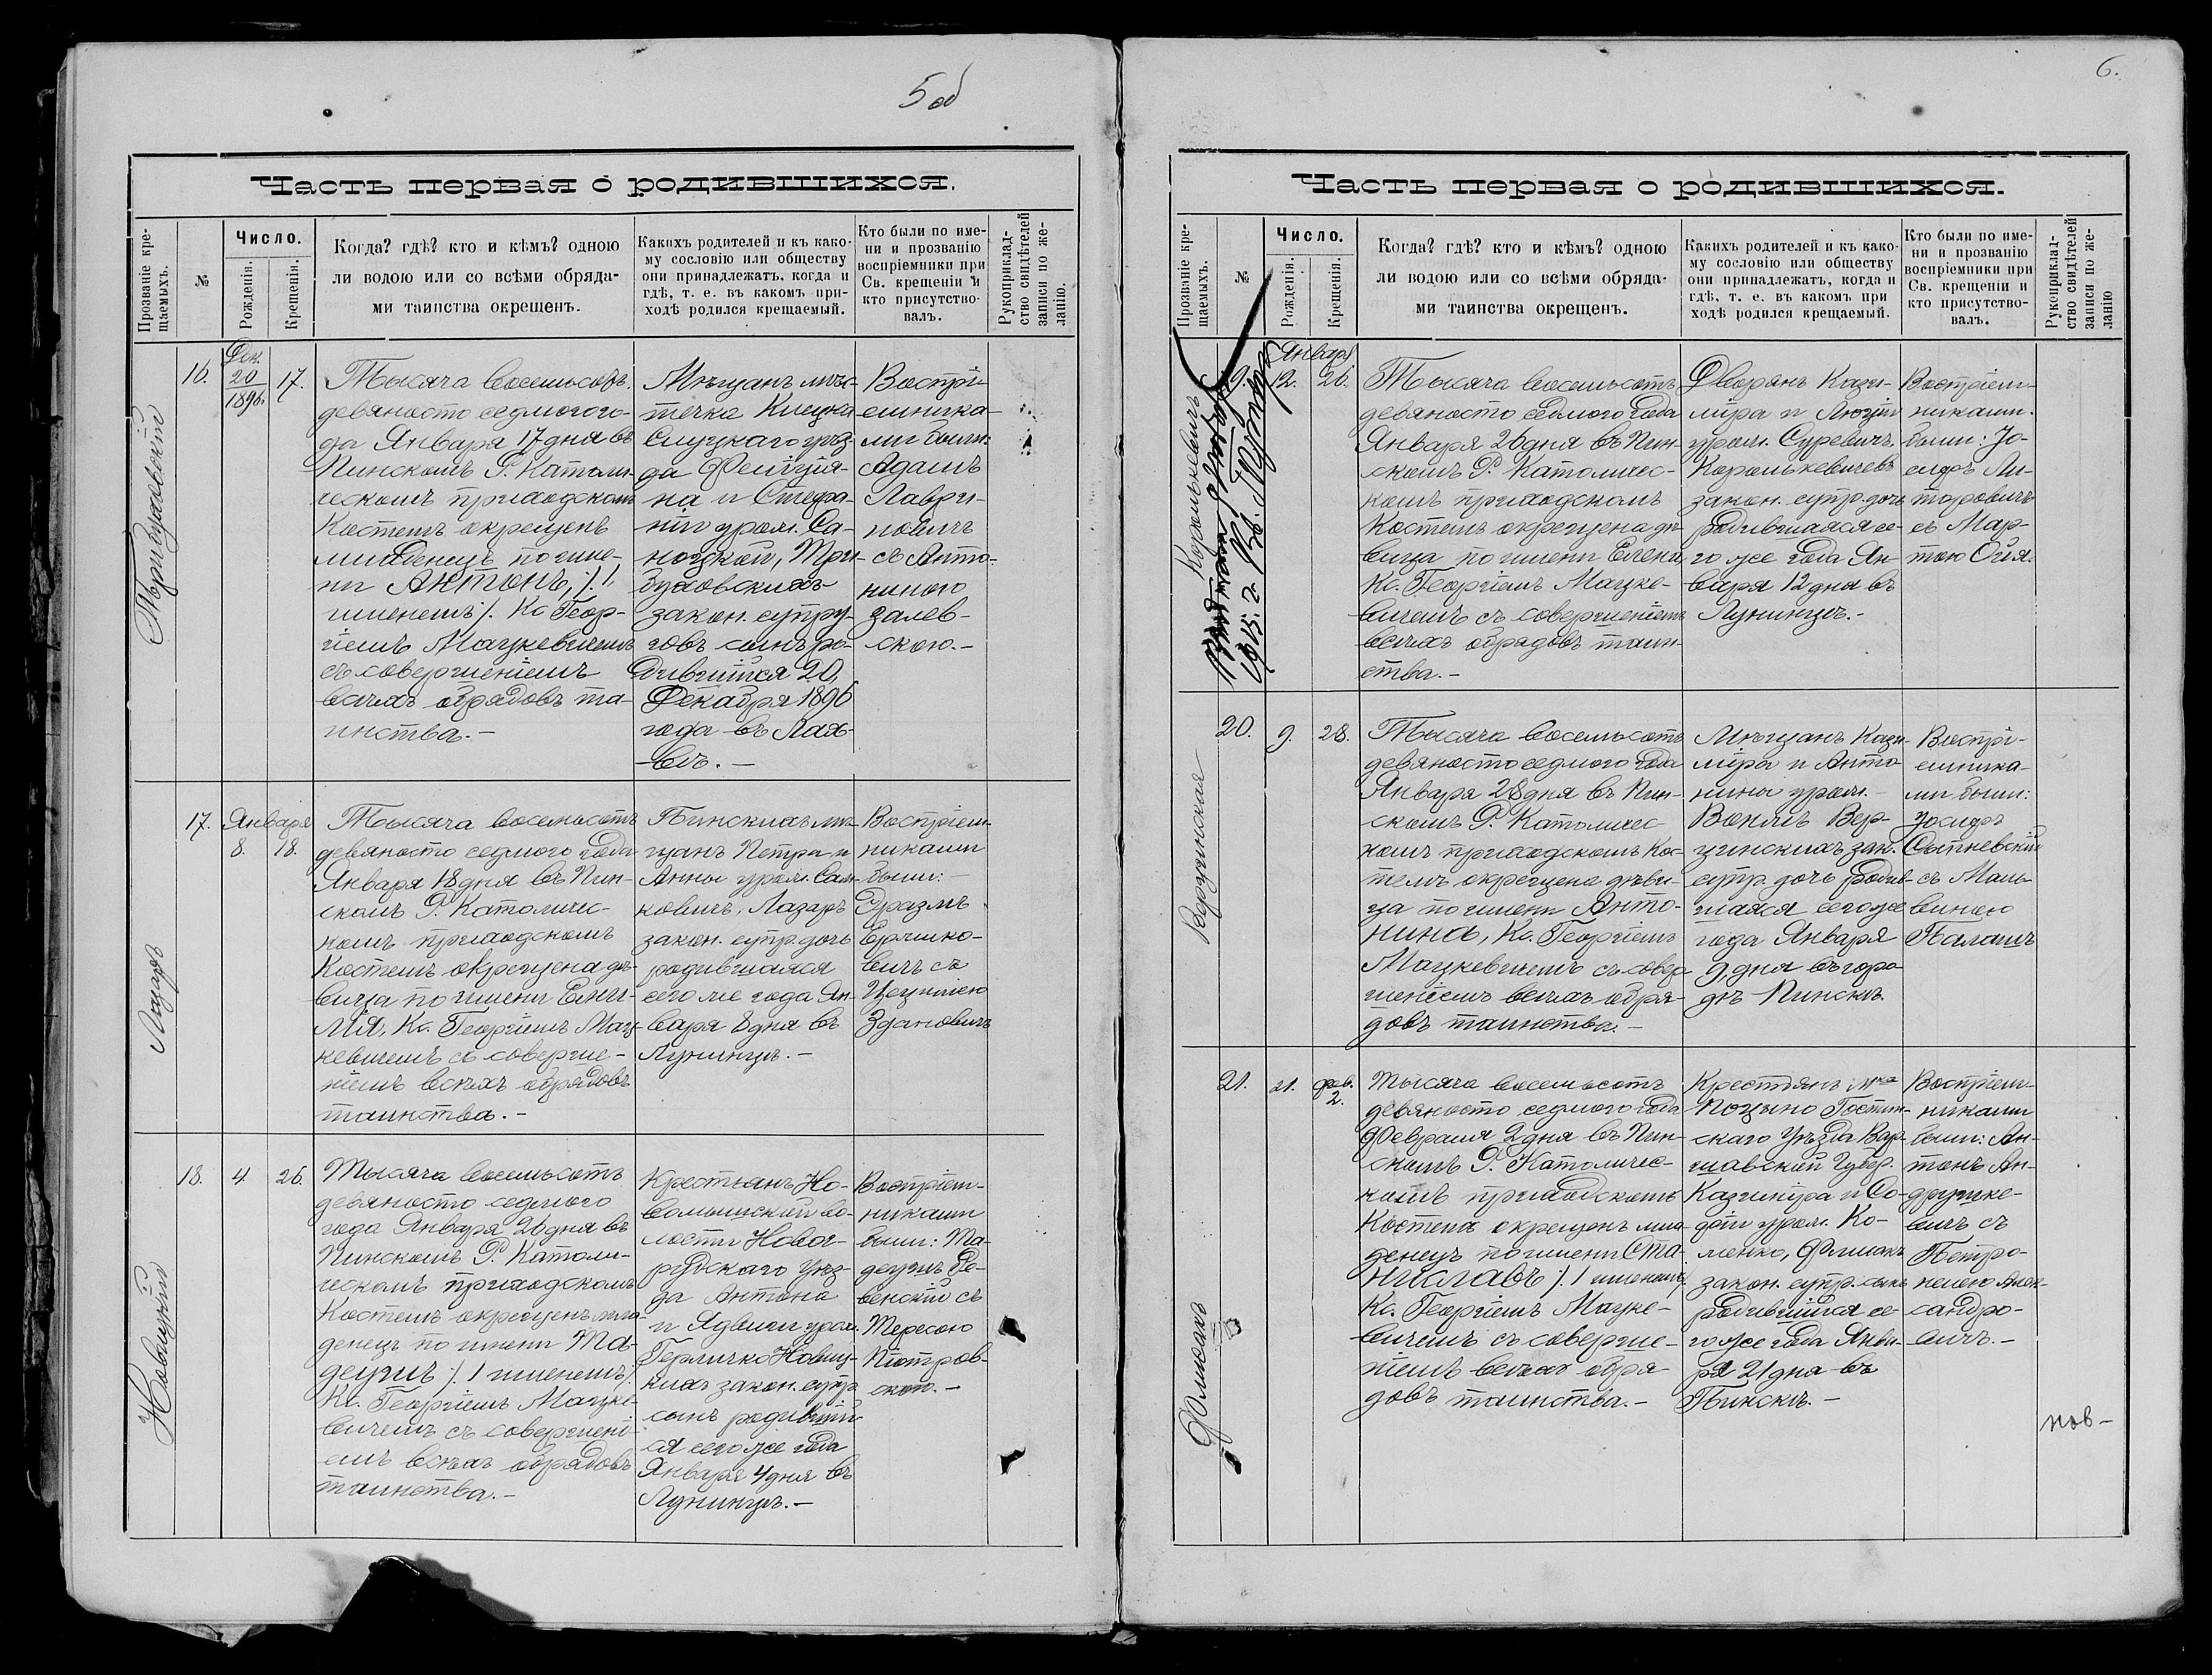 5 об
Часть первая о родившихся.
Прозваніе кре-
щаемыхъ.
№
Число.
Рожденія.
Крещенія.
Когда? гдѣ? кто и кѣмъ? одною
ли водою или со всѣми обряда-
ми таинства окрещенъ.
Какихъ родителей и къ како-
му сословію или обществу
они принадлежатъ. когда и
гдѣ, т. е. въ какомъ при-
ходѣ родился крещаемый.
Кто были по име-
ни и прозванію
воспріемники при
Св. крещеніи и
кто присутство-
валъ.
Рукоприклад-
ство свидѣтелей
записи по же-
ланію.
16.
Дек.
20
1896.
17.
Тысяча восемьсотъ
девяносто седмого го-
да Января 17 дня въ
Пинскомъ Р. Католи-
ческомъ приходскомъ
Костелѣ окрещенъ
младенецъ по име-
ни Антонъ, /. 1,
именемъ /. Кс. Геор-
гіемъ Мацкевичемъ
съ совершеніемъ
всѣхъ обрядовъ та-
инства. -
Мѣщанъ мѣс-
течка Клецка
Слуцкаго уѣз-
да Фелиція-
на и Стефа-
ніи урож. Са-
ноцкой, Три-
буховскихъ
закон. супру-
говъ сынъ ро-
дившійся 20,
Декабря 1896
года въ Лах-
вѣ. -
Воспрі-
емника-
ми были:
Адамъ
Лаври-
новичъ
съ Анто-
ниною
Залев-
скою. -
17.
Января
8.
18.
Лазаръ
Тысяча восемьсотъ
девяносто седмого года
Января 18 дня въ Пин-
скомъ Р. Католичес-
комъ приходскомъ
Костелѣ окрещена дѣ-
вица по имени Еми-
лія, Кс. Георгіемъ Мац-
кевичемъ съ соверше-
ніемъ всѣхъ обрядовъ
таинства. -
Пинскихъ мѣ-
щанъ Петра и
Анны урож. Сам-
ковичъ, Лазаръ
закон. супр. дочь
родившаяся
сего же года Ян-
варя 8 дня въ
Лунинцѣ. -
Воспріем-
никами
были: -
Эразмъ
Ермако-
вичъ съ
Цецилею
Здановичъ
18.
4
26.
Новицкій
Тысяча восемьсотъ
девяносто седмого
года Января 26 дня въ
Пинскомъ Р. Католи-
ческомъ приходскомъ
Костелѣ окрещенъ мла-
денецъ по имени Та-
деушъ /. 1 именемъ /.
Кс. Георгіемъ Мацке-
вичемъ съ совершені-
емъ всѣхъ обрядовъ
таинства. -
Крестьянъ Но-
вомышской во-
лости Новог-
рудскаго уѣз-
да Антона
и Ядвиги урож.
Герличко Новиц-
кихъ закон. супр.
сынъ родившій-
ся сего же года
Января 4 дня въ
Лунинцѣ. -
Воспріем-
никами
были: Та-
деушъ Де-
венскій съ
Тересою
Піотров-
скою. -
6.
Часть первая о родившихся.
Прозваніе кре-
щаемыхъ.
№
Число.
Рожденія.
Крещенія.
Когда? гдѣ? кто и кѣмъ? одною
ли водою или со всѣми обряда-
ми таинства окрещенъ.
Какихъ родителей и къ како-
му сословію или обществу
они принадлежатъ, когда и
гдѣ, т. е. въ какомъ при
ходѣ родился крещаемый.
Кто были по име-
ни и прозванію
воспріемники при
Св. крещеніи и
кто присутство-
валъ.
Рукоприклад-
ство свидѣтелей
записи по же-
ланію
Корольковичъ
Января
12.
26.
Тысяча восемьсотъ
девяносто седмого года
Января 26 дня въ Пин-
скомъ Р. Католичес-
комъ приходскомъ
Костелѣ окрещена дѣ-
вица по имени Елена,
Кс. Георгіемъ Мацке-
вичемъ съ совершеніемъ
всѣхъ обрядовъ таин-
ства. -
Дворянъ Кази-
міра и Люціи
урож. Суревичъ,
Королькевичевъ
закон. супр. дочь
родившаяся се-
го же года Ян-
варя 12 дня въ
Лунинцѣ. -
Воспріем-
никами.
были: Іо-
сифъ Ли-
таровичъ
съ Мар-
тою
20.
9.
28.
Тысяча восемьсотъ
девяносто седмого года
Января 28 дня въ Пин-
скомъ Р. Католичес
комъ приходскомъ Кос-
телѣ окрещена дѣви-
ца по имени Анто-
нина, Кс. Георгіемъ
Мацкевичемъ съ совер-
шеніемъ всѣхъ обря-
довъ таинства. -
Мѣщанъ Кази-
міра и Анто
нины урож. -
Вер-
цинскихъ зак.
супр. дочь родив-
шаяся сего же
года Января
9, дня въ горо-
дѣ Пинскѣ.
Воспрі-
емника-
ми были:
Іосифъ
Сытневскій
съ Маль-
виною
Баламъ
21.
21.
Фев.
2.
Фолисакъ
Тысяча восемьсотъ
девяносто седмого года
Февраля 2 дня въ Пин-
скомъ Р. Католичес-
комъ приходскомъ
Костелѣ окрещенъ мла-
денецъ по имени Ста-
ниславъ /. 1 именемъ /.
Кс. Георгіемъ Мацке-
вичемъ съ соверше-
ніемъ всѣхъ обря-
довъ таинства. -
Крестьянъ
Гостин-
скаго Уѣзда Вар-
шавской Губер.
Казимира и Со-
фіи урож. Ко-
менко,
закон. супр. сынъ
родившійся се-
го же года Янва-
ря 21 дня въ
Пинскѣ. -
Воспріем-
никами
были: Ан-
тонъ Ан-
друшке-
вичъ съ
Петро-
нелею Алек-
сандро-
вичъ. -
нов-